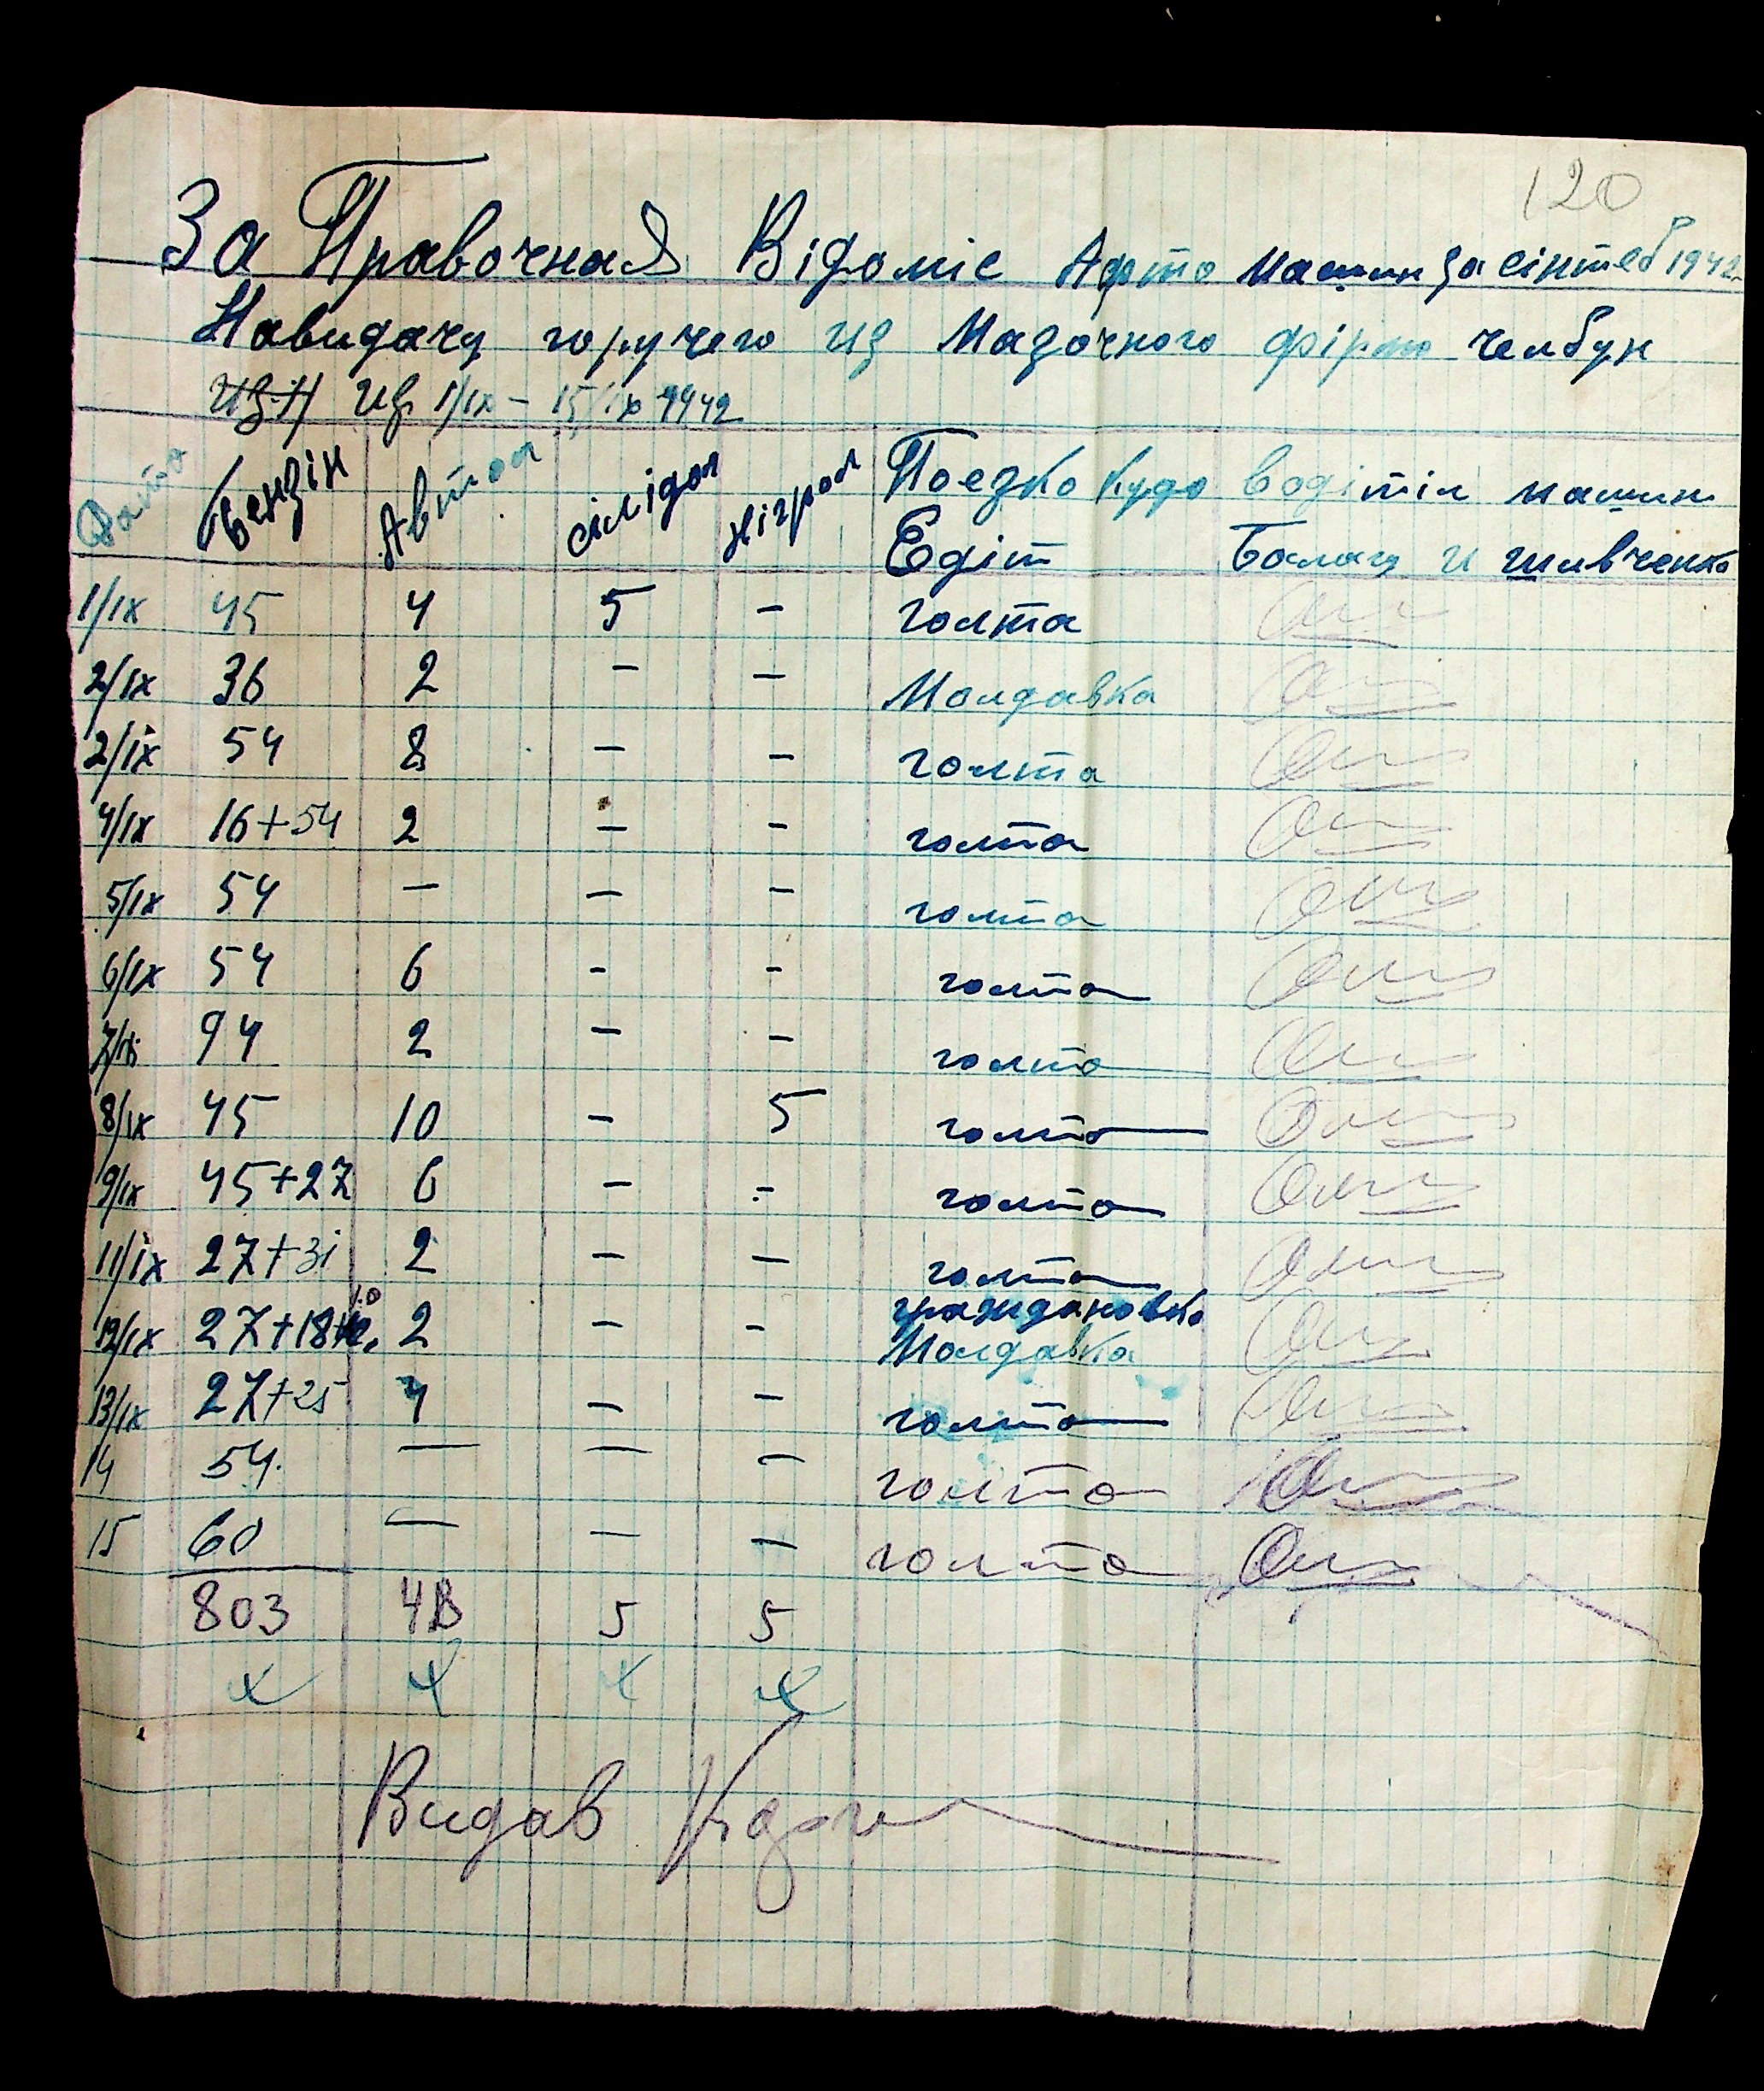 120
За Правочная Відоміс Афто машин за сінтеб 1942
Навидачу горучего из Мазочного фірмо челбун
из И из 1/IX – 15/IX 1942
Дата Бензін Автол сілідол нігрол Поезко Кудо водітіл машин
Едіт Балаги и шивченко
1/IX 45 4 5 – голта
2/IX 36 2 – – Молдавка
2/IX 54 8 – – голта
4/IX 16+54 2 – – голта
5/IX 54 – – – голта
6/IX 54 6 – – голта
7/IX 94 2 – – голта
8/IX 45 10 – 5 голта
9/IX 45+27 6 – – голта
11/IX 27+31 2 – – голта
12/IX 27+18 2 – – граждановка
Молдавка
13/IX 27+25 4 – – голта
14 54. – – – голта
15 60 – – – голта
803 48 5 5
Видав